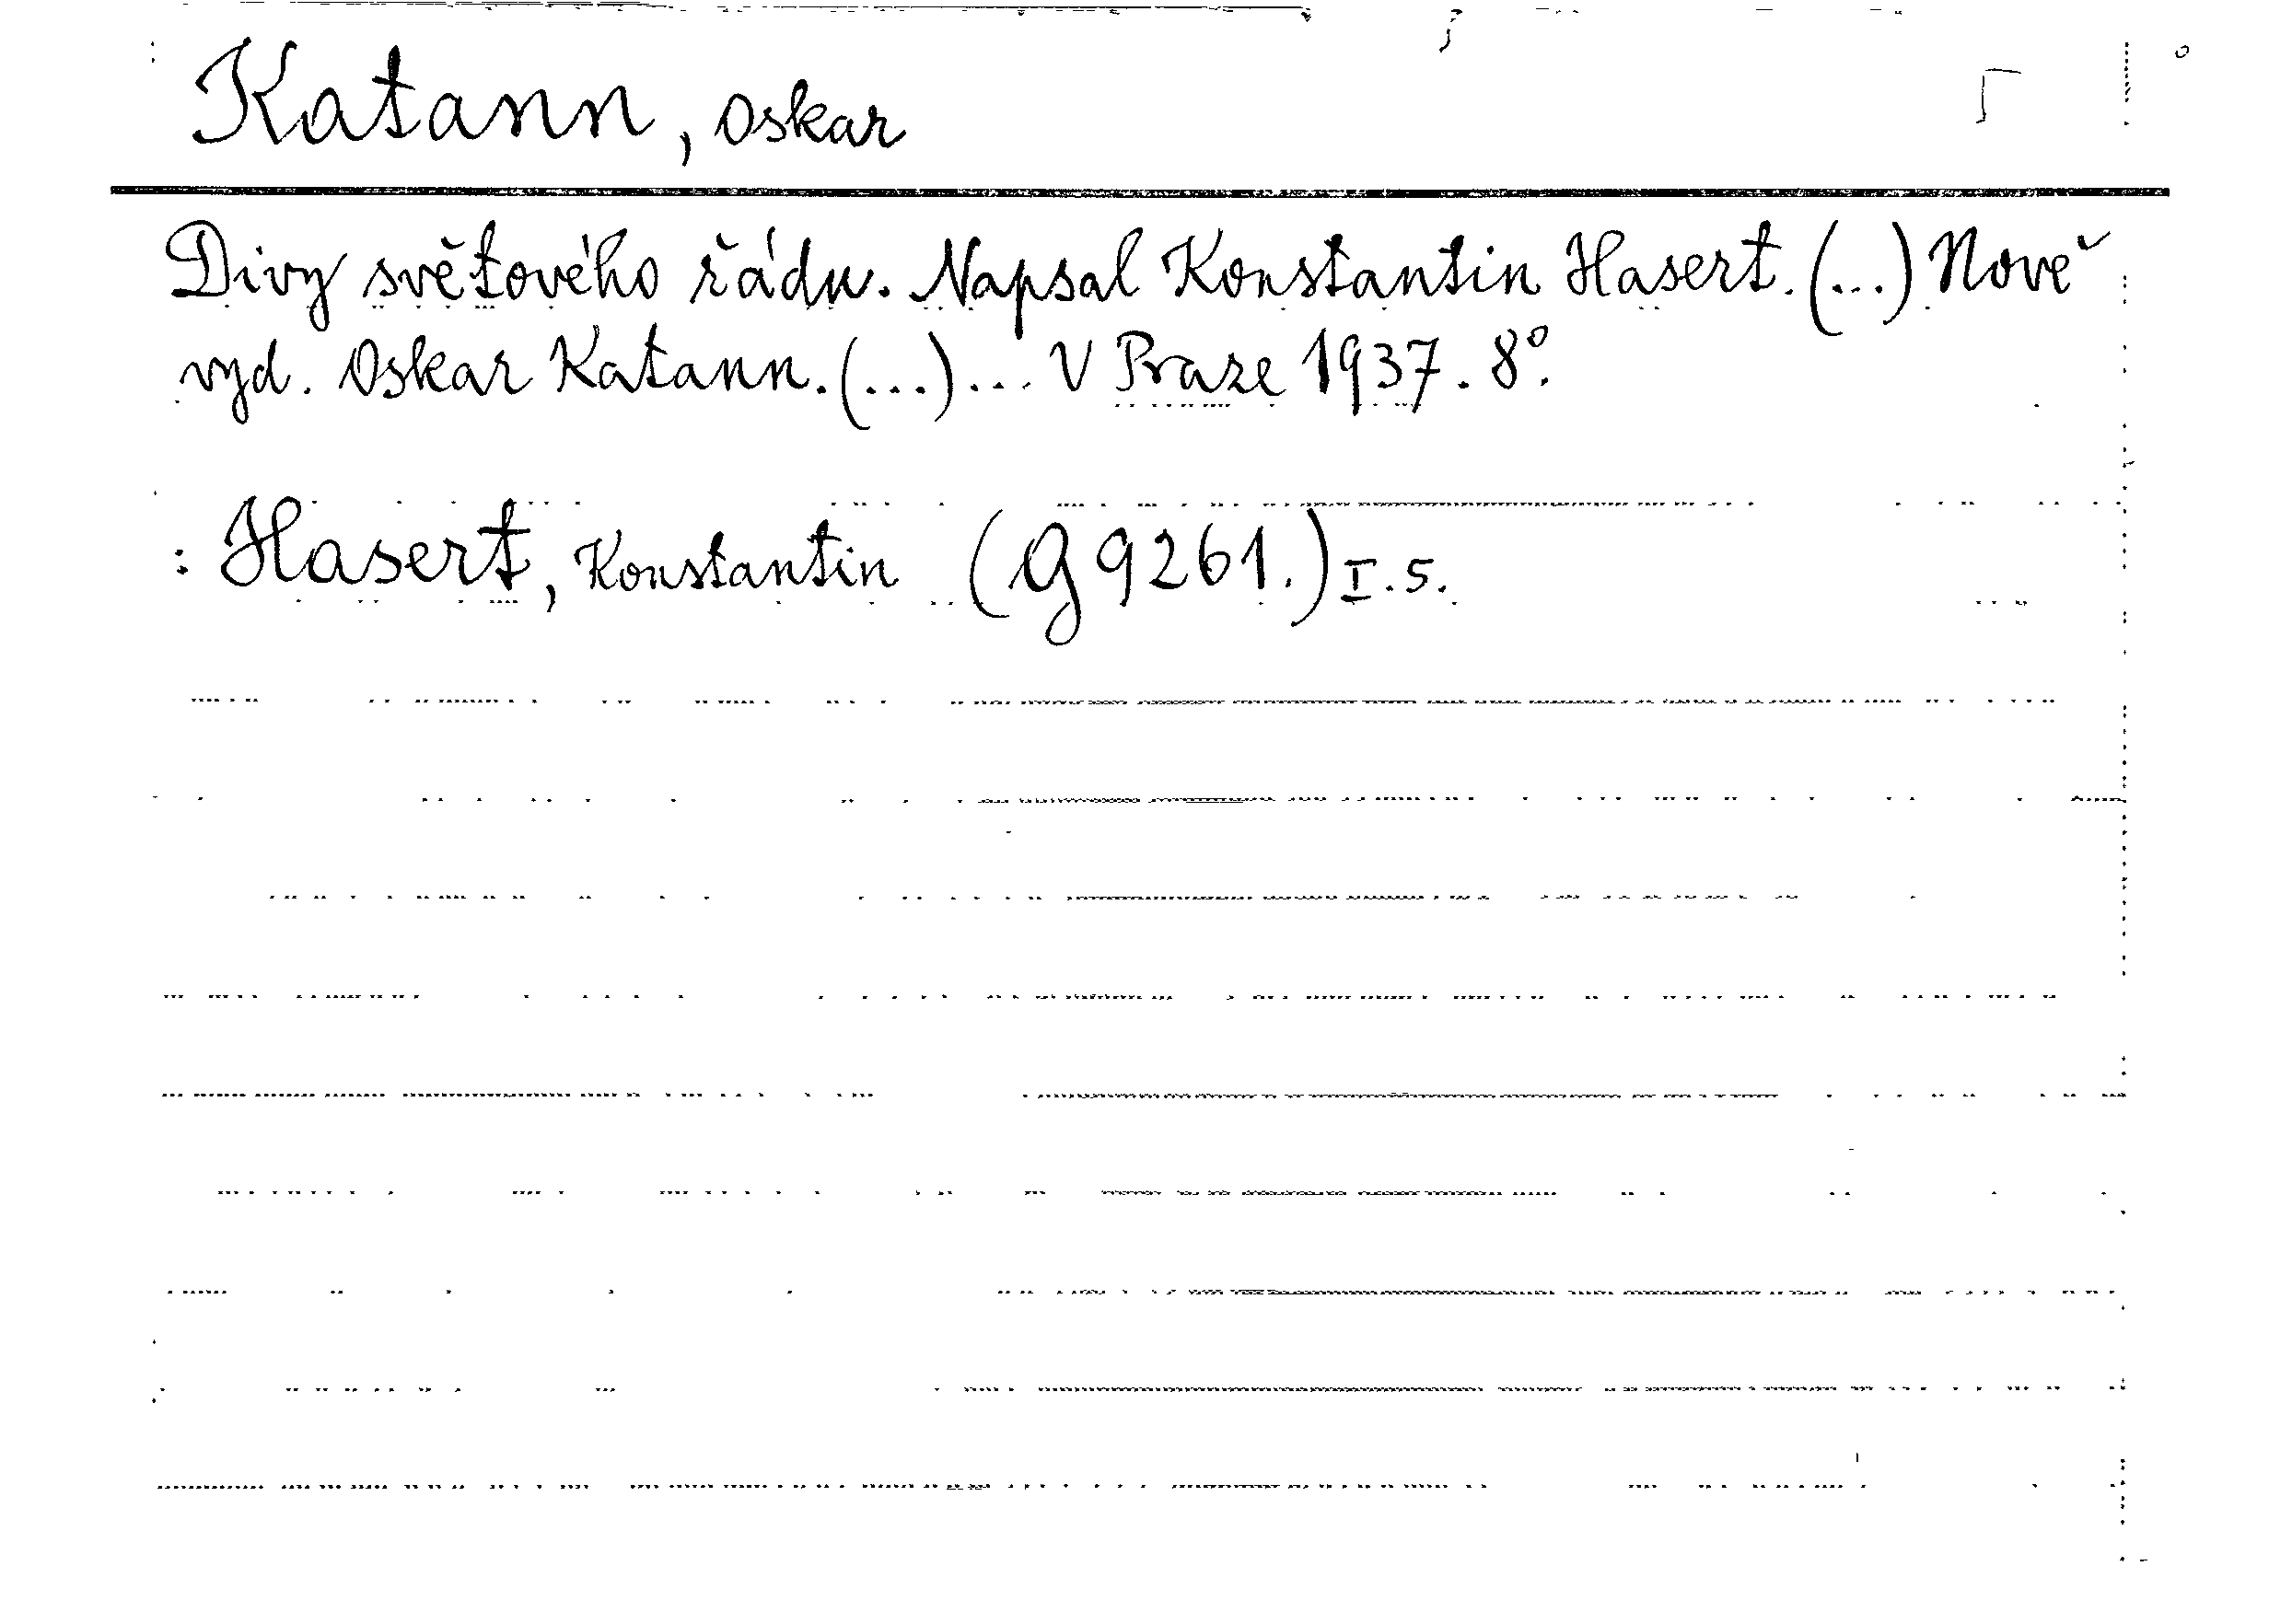 Katann, Oskar
Divy světového řádu. Napsal Konstantin Hasert. (...) Nově
vyd. Oskar Katann. (...) ... V Praze 1937. 8°.
: Hasert, Konstantin (G 9261.) I. 5.